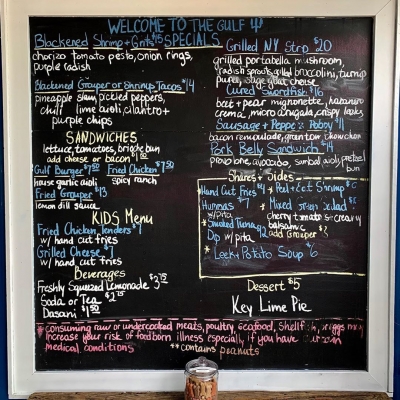 WELCOME TO THE GULF
Blackened Shrimp + Grits $15 SPECIALS
chorizo tomato pesto, onion rings,
purple radish
Blackened Grouper or Shrimp Tacos $14
pineapple slaw, pickled peppers,
chili lime aioli, cilantro +
purple chips
SANDWICHES
lettuce, tomatoes, brioche bun
add cheese or bacon $1.50
Gulf Burger $7.50 Fried Chicken $7.50
house garlic aioli spicy ranch
Fried Grouper $13
lemon dill sauce
KIDS Menu
Fried Chicken Tenders $7
w/ hand cut fries
Grilled Cheese $7
w/ hand cut fries
Beverages
Freshly Squeezed Lemonade $3.75
Soda or Tea $2.75
Dasani $1.50
Grilled NY Strip $20
grilled portabella mushroom,
radish sprouts, grilled broccolini, turnip
puree, blue cheese
Cured Swordfish $16
beet + pear mignonette, habanero
crema, micro arugula, crispy leeks
Sausage + Peppers Poboy $11
bacon remoulade, chow chow
Pork Belly Sandwich $14
provolone, avocado, aioli, pretzel
bun
Shares + Sides
Hand Cut Fries $4
Hummus $7
w/ pita
*Smoked Tuna $12
Dip w/ pita
*Peel + Eat Shrimp
*Mixed Green Salad $8
cherry tomato + creamy
balsamic
add Grouper
*Leek + Potato Soup $6
Dessert $5
Key Lime Pie
*consuming raw or undercooked meats, poultry, seafood, shellfish, or eggs may
increase your risk of foodborn illness, especially if you have certain
medical conditions **contains peanuts